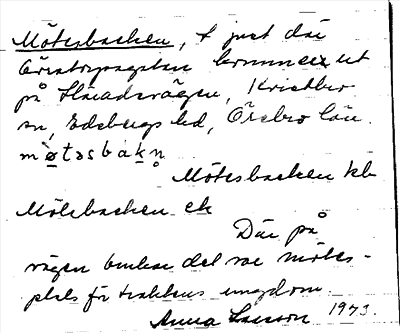 Mötesbacken, t just där
Örestorpagatan kommer ut
på Häradsvägen, Kristbro
sn, Edsbergs hd, Örebro län.
mö̀təsbakn̥
Mötesbacken kb
Mötesbacken ek
Där på
vägen brukar det va mötes-
plats för traktens ungdom.
Anna Larsson 1973.